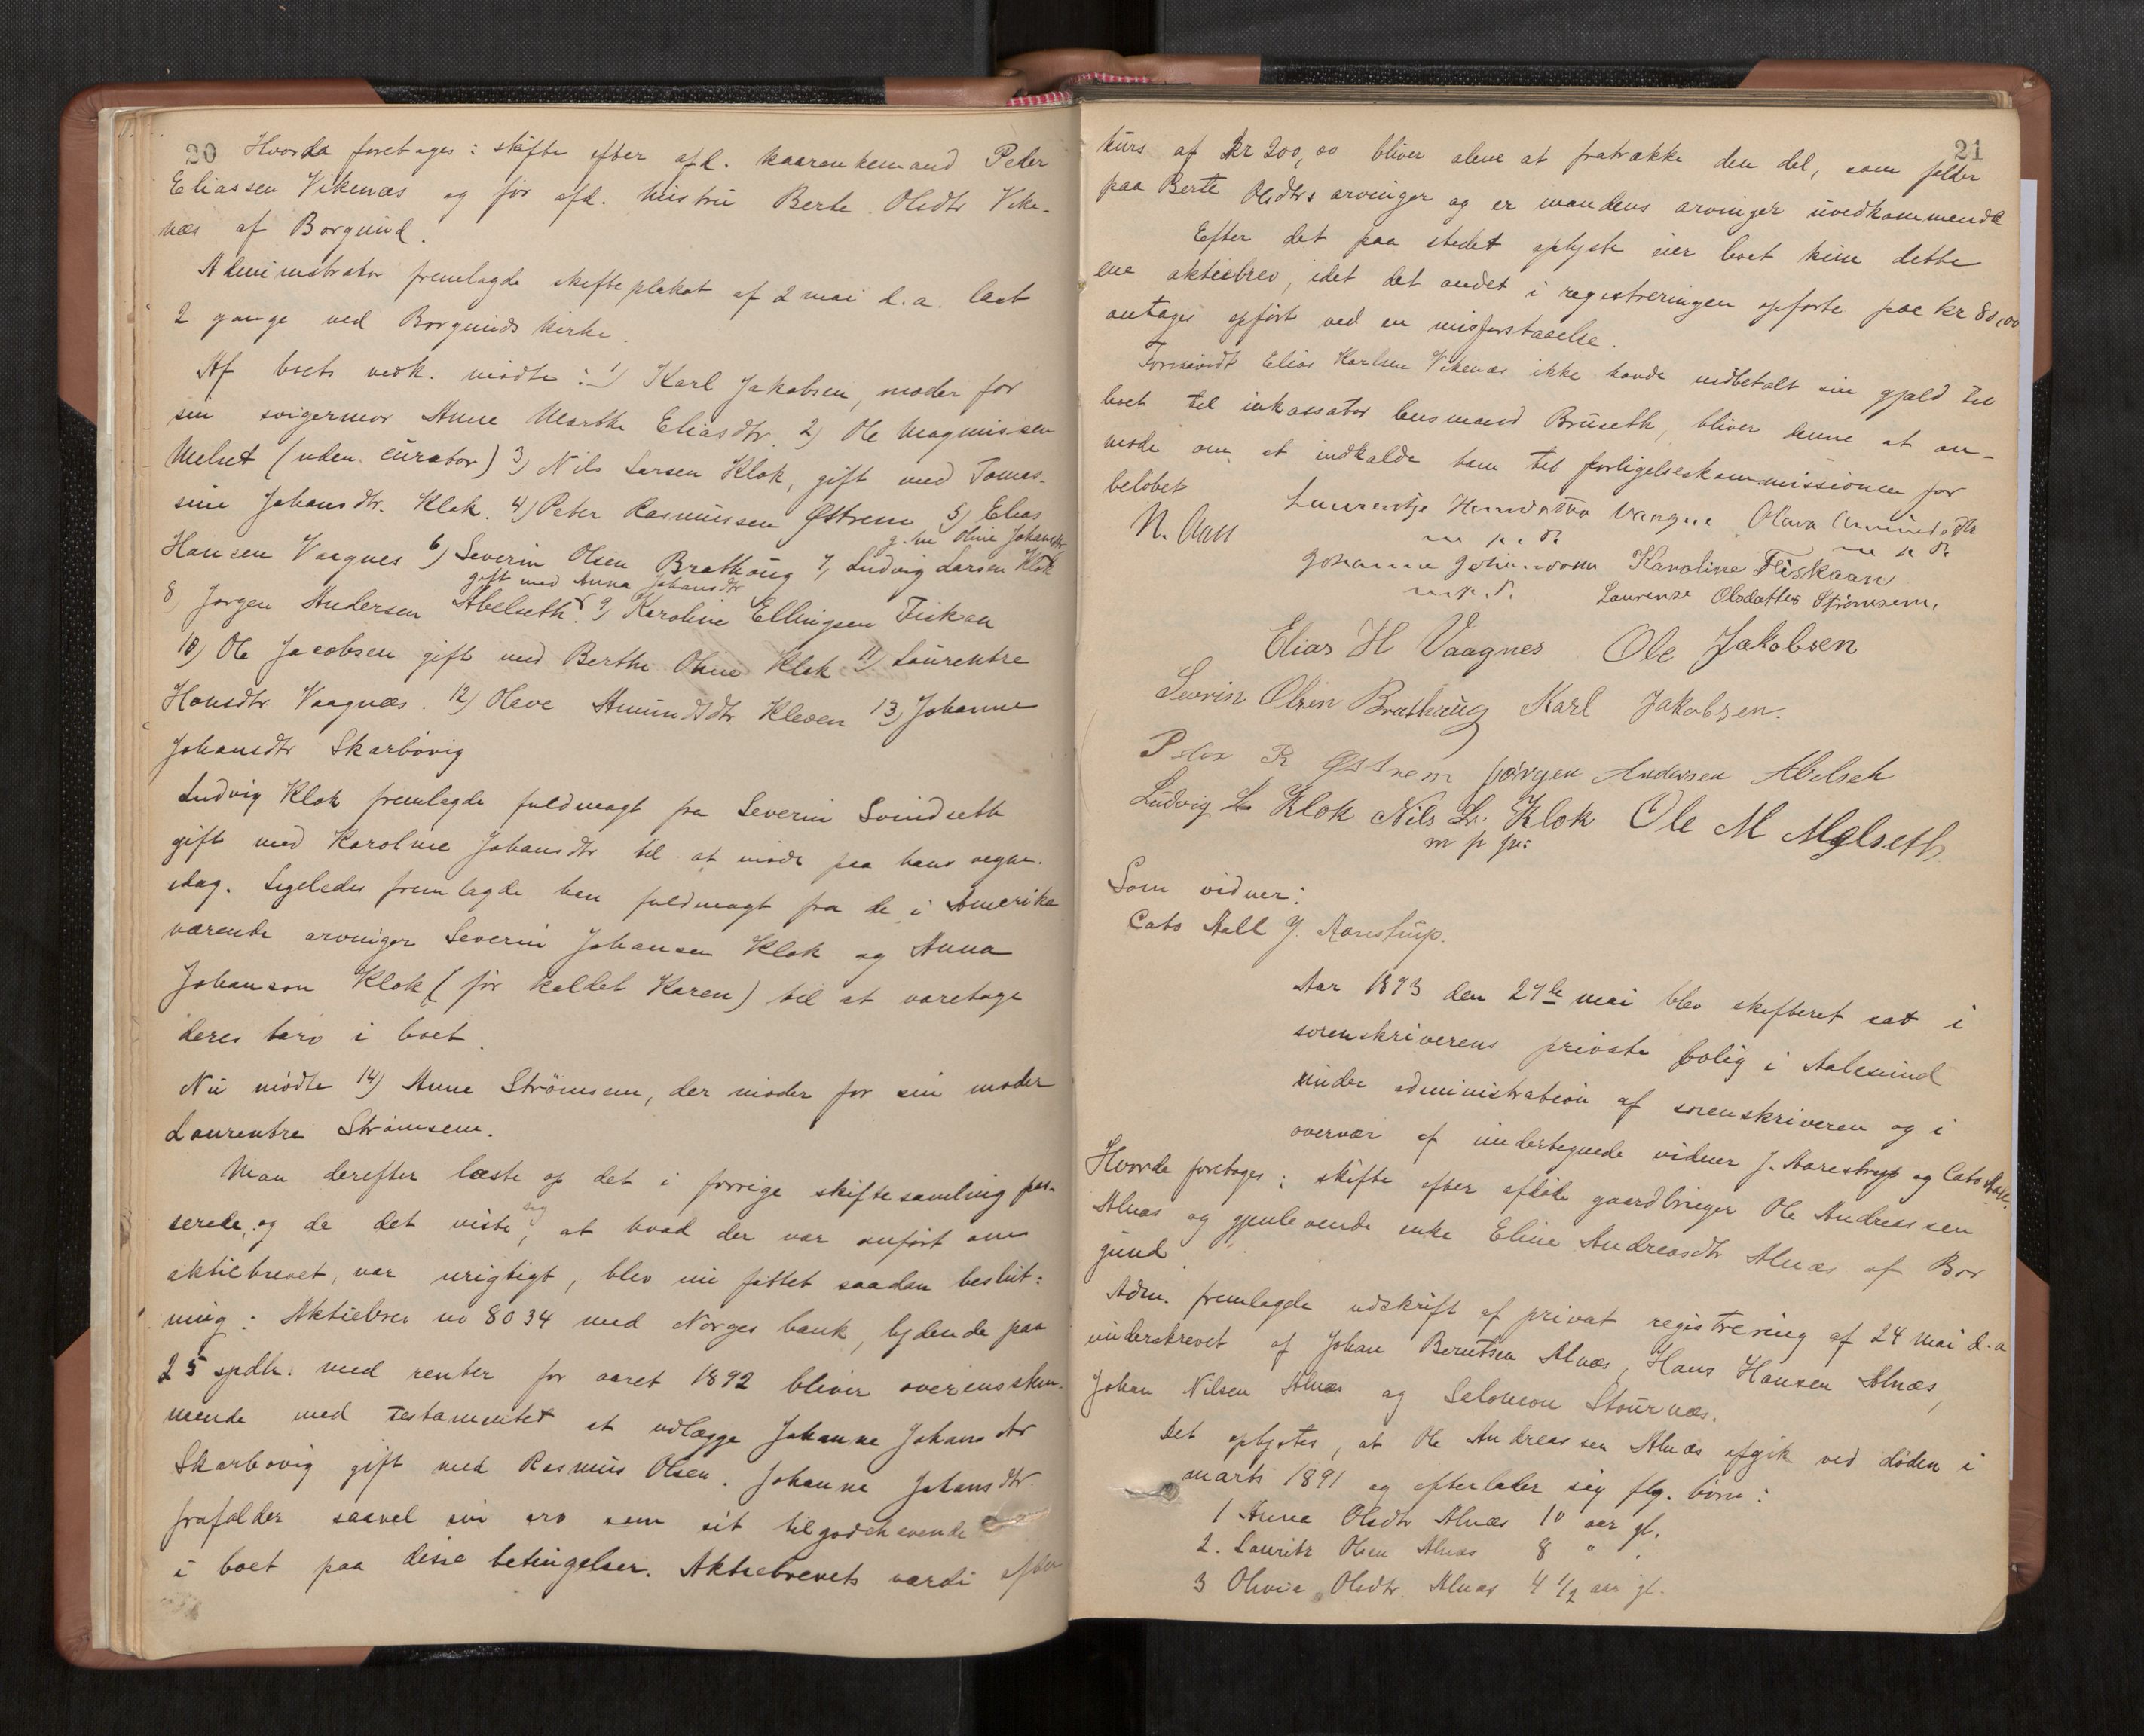 20
Hvorda foretages: skifte efter afd. kaarenkemand Peder
Eliassen Vikenæs og før afd. hustru Berte Olsdtr Vike-
næs af Borgund.
Administrator fremlagde skifteplakat af 2 mai d.a. læst
2 gange ved Borgunds kirke.
Af boets vedk. mødte: 1) Karl Jakobsen, møder for
sin svigermor Anne Marthe Eliasdtr. 2) Ole Magnussen
Melset (uden curator) 3) Nils Larsen Klok, gift med Tomas-
sine Johansdtr. Klok. 4) Peter Rasmussen Østrem 5) Elias
g. m Oline Johansdtr
Hansen Vaagnes 6) Severin Olsen Brathaug 7) Ludvig Larsen Klok
gift med Anna Johansdtr
8) Jørgen Andersen Abelseth. 9) Karoline Ellingsen Fiskaa
10) Ole Jacobsen gift med Berthe Oline Klok 11) Laurentse
Hansdtr Vaagnæs. 12) Olave Amundsdtr Kleven 13) Johanne
Johansdtr Skarbøvig
Ludvig Klok fremlagde fuldmagt fra Severin Svindseth
gift med Karoline Johansdtr til at møde paa hans vegne
idag. Ligeledes fremlagde han fuldmagt fra de i Amerika
værende arvinger Severin Johansen Klok og Anna
Johanson Klok (før kaldet Karen) til at varetage
deres tarv i boet.
Nu mødte 14) Anne Strømsem, der møder for sin moder
Laurentse Strømsem.
Man derefter læste op det i forrige skiftesamling pas-
sig
serede, og da det viste, at hvad der var anført om
aktiebrevet, var urigtigt, blev nu fattet saadan beslut:
ning: Aktiebrev no 8034 med Norges bank, lydende paa
25 spdlr. med renter for aaret 1892 bliver overensstem-
mende med testamentet at udlægge Johanne Johansdtr
Skarbøvig gift med Rasmus Olsen. Johanne Johansdtr.
frafalder saavel sin arv som sit tilgodehavende
i boet paa disse betingelser. Aktiebrevets værdi efter
21
kurs af kr 200,00 bliver alene at fratrække den del, som falder
paa Berte Olsdtrs arvinger og er mandens arvinger uvedkommende
Efter det paa stedet oplyste eier boet kun dette
ene aktiebrev, idet det andet i registreringen opførte paa kr 80,00
antages opført ved en misforstaaelse.
Forsaavidt Elias Karlsen Vikenæs ikke havde indbetalt sin gjæld til
boet til inkassator lensmand Bruseth, bliver denne at an-
mode om at indkalde ham til forligelseskommissionen for
beløbet
N. Aall
Laurentse Hansdatter Vaagne Olava Amundsdtr
m p. P.
m p P
Johanne Johansdatter Karoline Fiskaan
m. p. P.
Laurense Olsdatter Strømsem.
Elias H Vaagnes Ole Jakobsen
Sevrin Olsen Brathaug Karl Jakobsen.
Peter R Østrem Jørgen Andersen Abelseh
Ludvig L Klok Nils L. Klok Ole M Mælseth
m p p:
Som vidner:
Cato Aall J. Aarestrup.
Aar 1893 den 27de mai blev skifteret sat i
sorenskriverens private bolig i Aalesund
under administration af sorenskriveren og i
overvær af undertegnede vidner J. Aarestrup og Cato Aall.
Hvorda foretoges: skifte efter afdøde gaardbruger Ole Andreassen
Alnæs og gjenlevende enke Eline Andreasdtr Alnæs af Bor
gund.
Adm. fremlagde udskrift af privat registrering af 24 mai d.a
underskrevet af Johan Berntsen Alnæs, Hans Hansen Alnæs,
Johan Nilsen Alnæs og Salomon Stournæs.
Det oplystes, at Ole Andreassen Alnæs afgik ved døden i
marts 1891 og efterlader sig flg. børn:
1 Anna Olsdtr Alnæs 10 aar gl.
2. Lauritz Olsen Alnæs 8 " "
3 Olivia Olsdtr. Alnæs 4 1/2 aar gl.